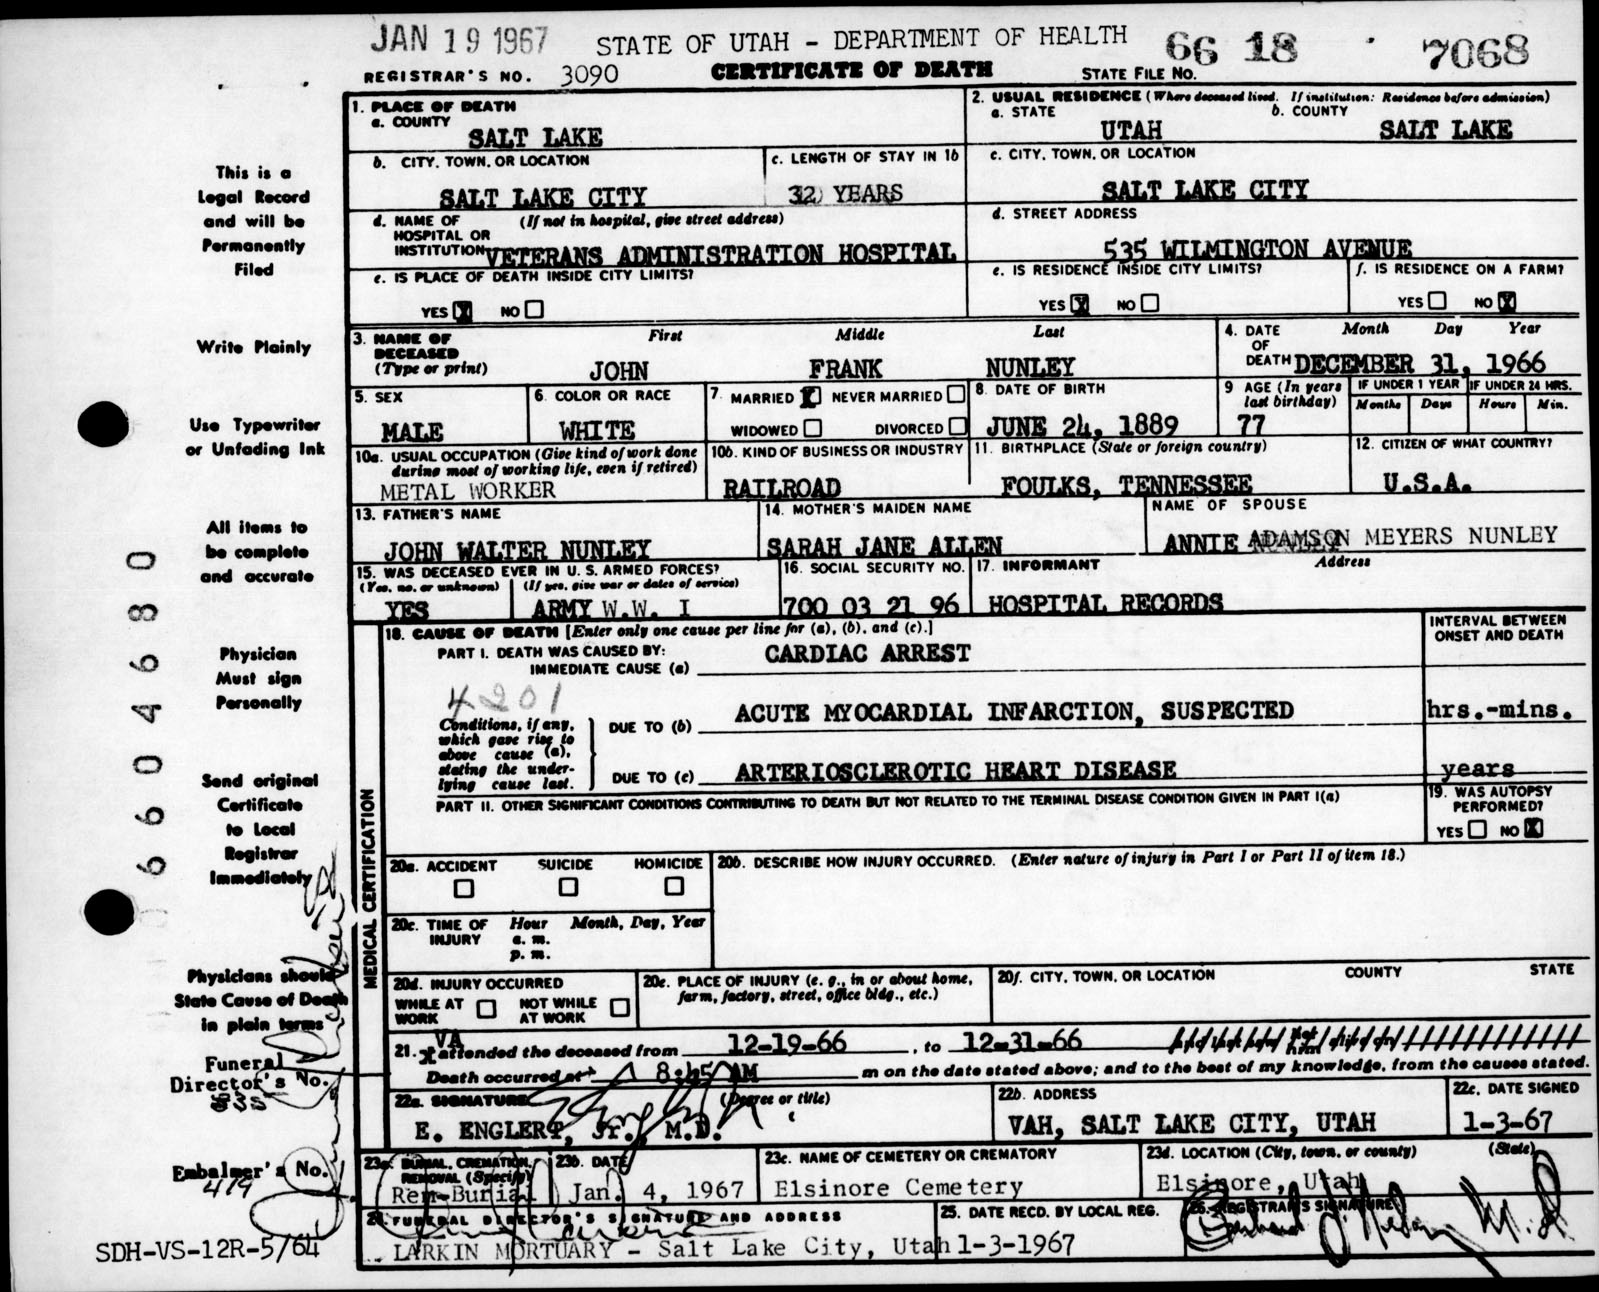 JAN 19 1967 STATE OF UTAH - DEPARTMENT OF HEALTH 66 18 7068
REGISTRAR'S NO. 3090 CERTIFICATE OF DEATH STATE FILE NO.
This is a
Legal Record
and will be
Permanently
Filed
Write Plainly
Use Typewriter
or Unfading Ink
All items to
be complete
and accurate
Physician
Must sign
Personally
Send original
Certificate
to Local
Registrar
Immediately
Physicians should
State Cause of Death
in plain terms
Funeral
Director's No.
Embalmer's No.
419
SDH-VS-12R-5/64
660 4680
1. PLACE OF DEATH
a. COUNTY
SALT LAKE
2. USUAL RESIDENCE (Where deceased lived. If institution: Residence before admission)
a. STATE b. COUNTY
UTAH SALT LAKE
b. CITY, TOWN, OR LOCATION
SALT LAKE CITY
c. LENGTH OF STAY IN 1b
32 YEARS
c. CITY, TOWN, OR LOCATION
SALT LAKE CITY
d. NAME OF (If not in hospital, give street address)
HOSPITAL OR
INSTITUTION VETERANS ADMINISTRATION HOSPITAL
d. STREET ADDRESS
535 WILMINGTON AVENUE
e. IS PLACE OF DEATH INSIDE CITY LIMITS?
YES X NO
e. IS RESIDENCE INSIDE CITY LIMITS?
YES X NO
f. IS RESIDENCE ON A FARM?
YES NO X
3. NAME OF First Middle Last
DECEASED
(Type or print) JOHN FRANK NUNLEY
4. DATE Month Day Year
OF
DEATH DECEMBER 31, 1966
5. SEX
MALE
6. COLOR OR RACE
WHITE
7. MARRIED X NEVER MARRIED
WIDOWED DIVORCED
8. DATE OF BIRTH
JUNE 24, 1889
9 AGE (In years
last birthday)
77
IF UNDER 1 YEAR IF UNDER 24 HRS.
Months Days Hours Min.
10a. USUAL OCCUPATION (Give kind of work done
during most of working life, even if retired)
METAL WORKER
10b. KIND OF BUSINESS OR INDUSTRY
RAILROAD
11. BIRTHPLACE (State or foreign country)
FOULKS, TENNESSEE
12. CITIZEN OF WHAT COUNTRY?
U.S.A.
13. FATHER'S NAME
JOHN WALTER NUNLEY
14. MOTHER'S MAIDEN NAME
SARAH JANE ALLEN
NAME OF SPOUSE
ANNIE ADAMSON MEYERS NUNLEY
15. WAS DECEASED EVER IN U. S. ARMED FORCES?
(Yes, no, or unknown) (If yes, give war or dates of service)
YES ARMY W.W. I
16. SOCIAL SECURITY NO.
700 03 21 96
17. INFORMANT Address
HOSPITAL RECORDS
MEDICAL CERTIFICATION
18. CAUSE OF DEATH [Enter only one cause per line for (a), (b), and (c).]
INTERVAL BETWEEN
ONSET AND DEATH
PART I. DEATH WAS CAUSED BY:
IMMEDIATE CAUSE (a) CARDIAC ARREST
4201
Conditions, if any,
which gave rise to
above cause (a),
stating the under-
lying cause last.
DUE TO (b) ACUTE MYOCARDIAL INFARCTION, SUSPECTED hrs.-mins.
DUE TO (c) ARTERIOSCLEROTIC HEART DISEASE years
PART II. OTHER SIGNIFICANT CONDITIONS CONTRIBUTING TO DEATH BUT NOT RELATED TO THE TERMINAL DISEASE CONDITION GIVEN IN PART I(a)
19. WAS AUTOPSY
PERFORMED?
YES NO X
20a. ACCIDENT SUICIDE HOMICIDE
20b. DESCRIBE HOW INJURY OCCURRED. (Enter nature of injury in Part I or Part II of item 18.)
20c. TIME OF Hour Month, Day, Year
INJURY a. m.
p. m.
20d. INJURY OCCURRED
WHILE AT NOT WHILE
WORK AT WORK
20e. PLACE OF INJURY (e. g., in or about home,
farm, factory, street, office bldg., etc.)
20f. CITY, TOWN, OR LOCATION COUNTY STATE
VA
21. attended the deceased from 12-19-66, to 12-31-66
Death occurred at 8:45 AM m on the date stated above; and to the best of my knowledge, from the causes stated.
22a. SIGNATURE (Degree or title)
E. ENGLERT, Jr., M.D.
22b. ADDRESS
VAH, SALT LAKE CITY, UTAH
22c. DATE SIGNED
1-3-67
23a. BURIAL, CREMATION,
REMOVAL (Specify)
Rem-Burial
23b. DATE
Jan. 4, 1967
23c. NAME OF CEMETERY OR CREMATORY
Elsinore Cemetery
23d. LOCATION (City, town, or county) (State)
Elsinore, Utah
24. FUNERAL DIRECTOR'S SIGNATURE AND ADDRESS
LARKIN MORTUARY - Salt Lake City, Utah
25. DATE RECD. BY LOCAL REG.
1-3-1967
26. REGISTRAR'S SIGNATURE